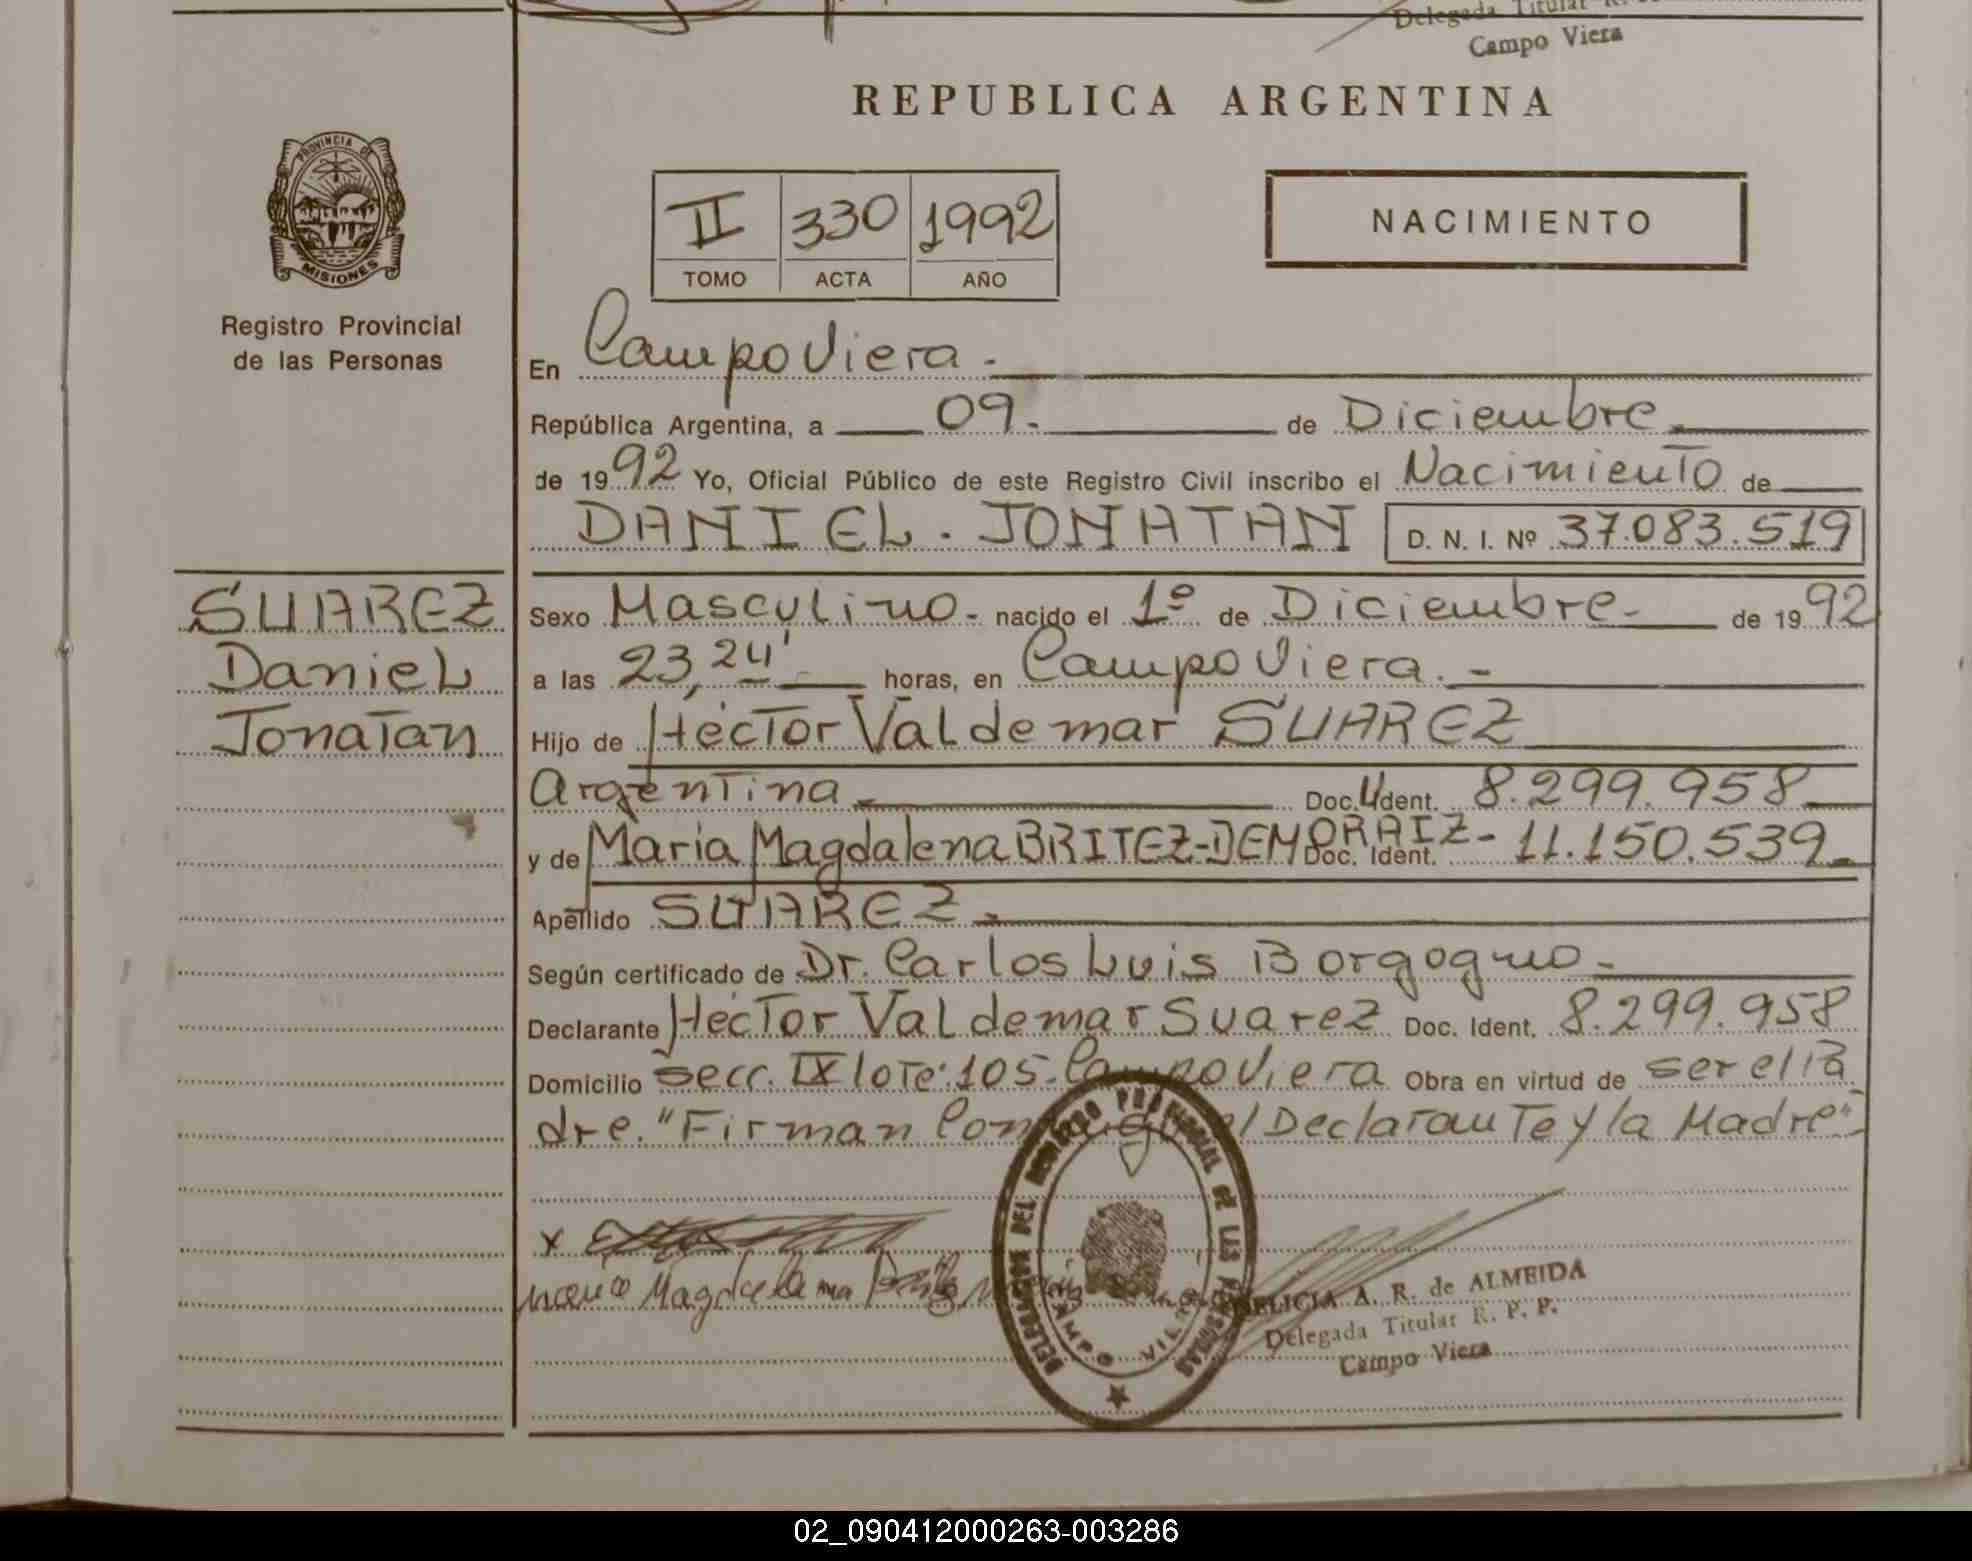 Delegada Titular R.
Campo Viera
REPUBLICA ARGENTINA
PROVINCIA DE
MISIONES
Registro Provincial
de las Personas
II 330 1992
TOMO ACTA AÑO
NACIMIENTO
En Campo Viera.-
República Argentina, a 09.- de Diciembre.-
de 1992 Yo, Oficial Público de este Registro Civil inscribo el Nacimiento de
DANIEL. JONATAN D. N. I. Nº 37.083.519
SUAREZ
Daniel
Jonatan
Sexo Masculino.- nacido el 1º de Diciembre.- de 1992
a las 23,24' horas, en Campo Viera.-
Hijo de Héctor Valdemar SUAREZ
Argentina.- Doc. Ident. 8.299.958
y de María Magdalena BRITEZ-DEMORAIZ- Doc. Ident. 11.150.539-
Apellido SUAREZ.-
Según certificado de Dr. Carlos Luis Borgogno.-
Declarante Héctor Valdemar Suarez Doc. Ident. 8.299.958
Domicilio secc. IX lote:105-Campo Viera Obra en virtud de ser el Pa
dre. "Firman Conmigo el Declarante y la Madre".-
x
Magdalena
DELEGACION DEL REGISTRO PROVINCIAL DE LAS PERSONAS
CAMPO VIERA
FELICIA A. R. de ALMEIDA
Delegada Titular R. P. P.
Campo Viera
02_090412000263-003286